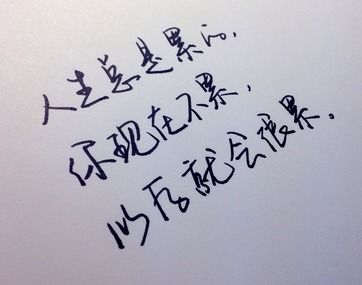 人生总是累的,
你现在不累,
以后就会很累.